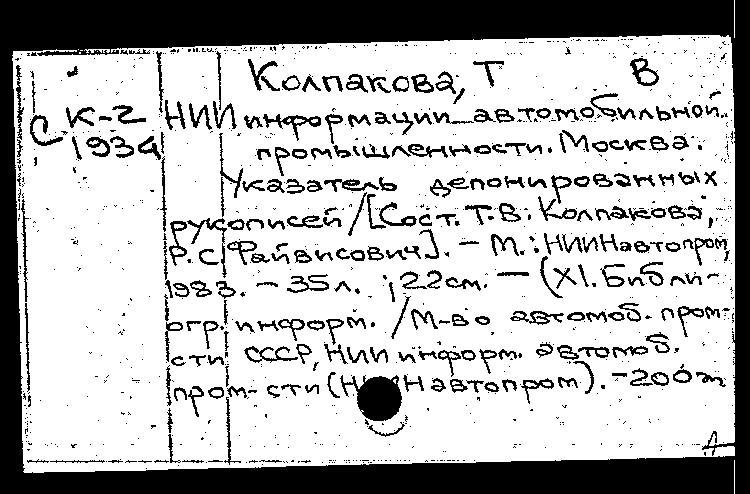 Колпакова, Т В
С К-2 НИИ информации автомобильной
1934 промышленности. Москва.
Указатель депонированных
рукописей / [Сост. Т.В. Колпакова,
Р.С. Файвисович]. - М.: НИИНавтопром,
1983. - 35л. ; 22см. - (XI. Библи-
огр. информ. / М-во автомоб. пром-
сти СССР, НИИ информ. автомоб.
пром-сти (НИИНавтопром). - 200